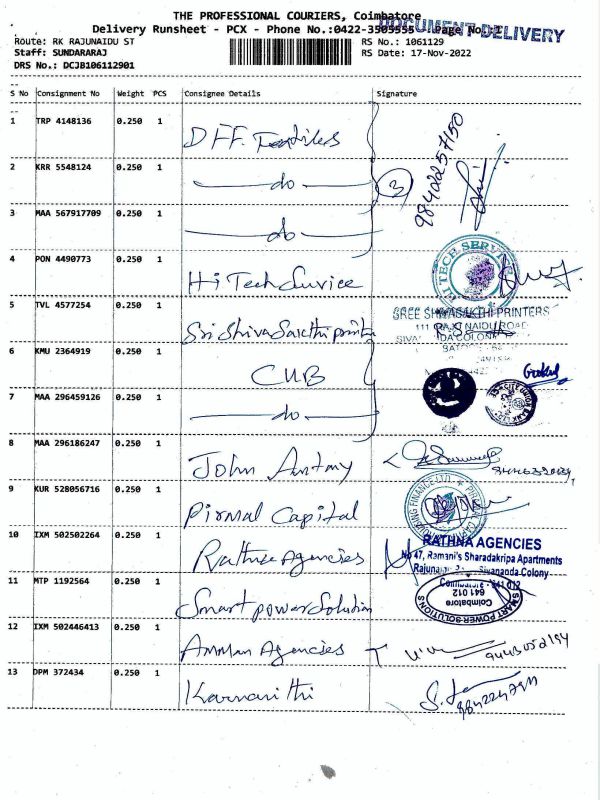 THE PROFESSIONAL COURIERS, Coimbatore
DOCUMENT DELIVERY
Delivery Runsheet - PCX - Phone No.:0422-3505555 Page No.:1
Route: RK RAJUNAIDU ST RS No.: 1061129
Staff: SUNDARARAJ RS Date: 17-Nov-2022
DRS No.: DCJB106112901
S No Consignment No Weight PCS Consignee Details Signature
1 TRP 4148136 0.250 1 DFF. Textiles
9842257150
2 KRR 5548124 0.250 1 do 3
3 MAA 567917709 0.250 1 do
4 PON 4490773 0.250 1 Hi Tech Service
HI TECH SERVICE
5 TVL 4577254 0.250 1 Sri Shiva Sakthi printer
SREE SHIVASAKTHI PRINTERS
111 RAJU NAIDU ROAD
6 KMU 2364919 0.250 1 CUB
7 MAA 296459126 0.250 1 do
CITY UNION BANK
8 MAA 296186247 0.250 1 John Antony
9 KUR 528056716 0.250 1 Pirmal Capital
HOUSING FINANCE LTD.
10 IXM 502502264 0.250 1 Rathna Agencies
RATHNA AGENCIES
No 47, Ramani's Sharadakripa Apartments
Sivananda Colony
Coimbatore - 641 012
11 MTP 1192564 0.250 1 Smart power Solution
SMART POWER SOLUTIONS
Coimbatore
641 012
12 IXM 502446413 0.250 1 Amman Agencies
13 DPM 372434 0.250 1 Karunanithi